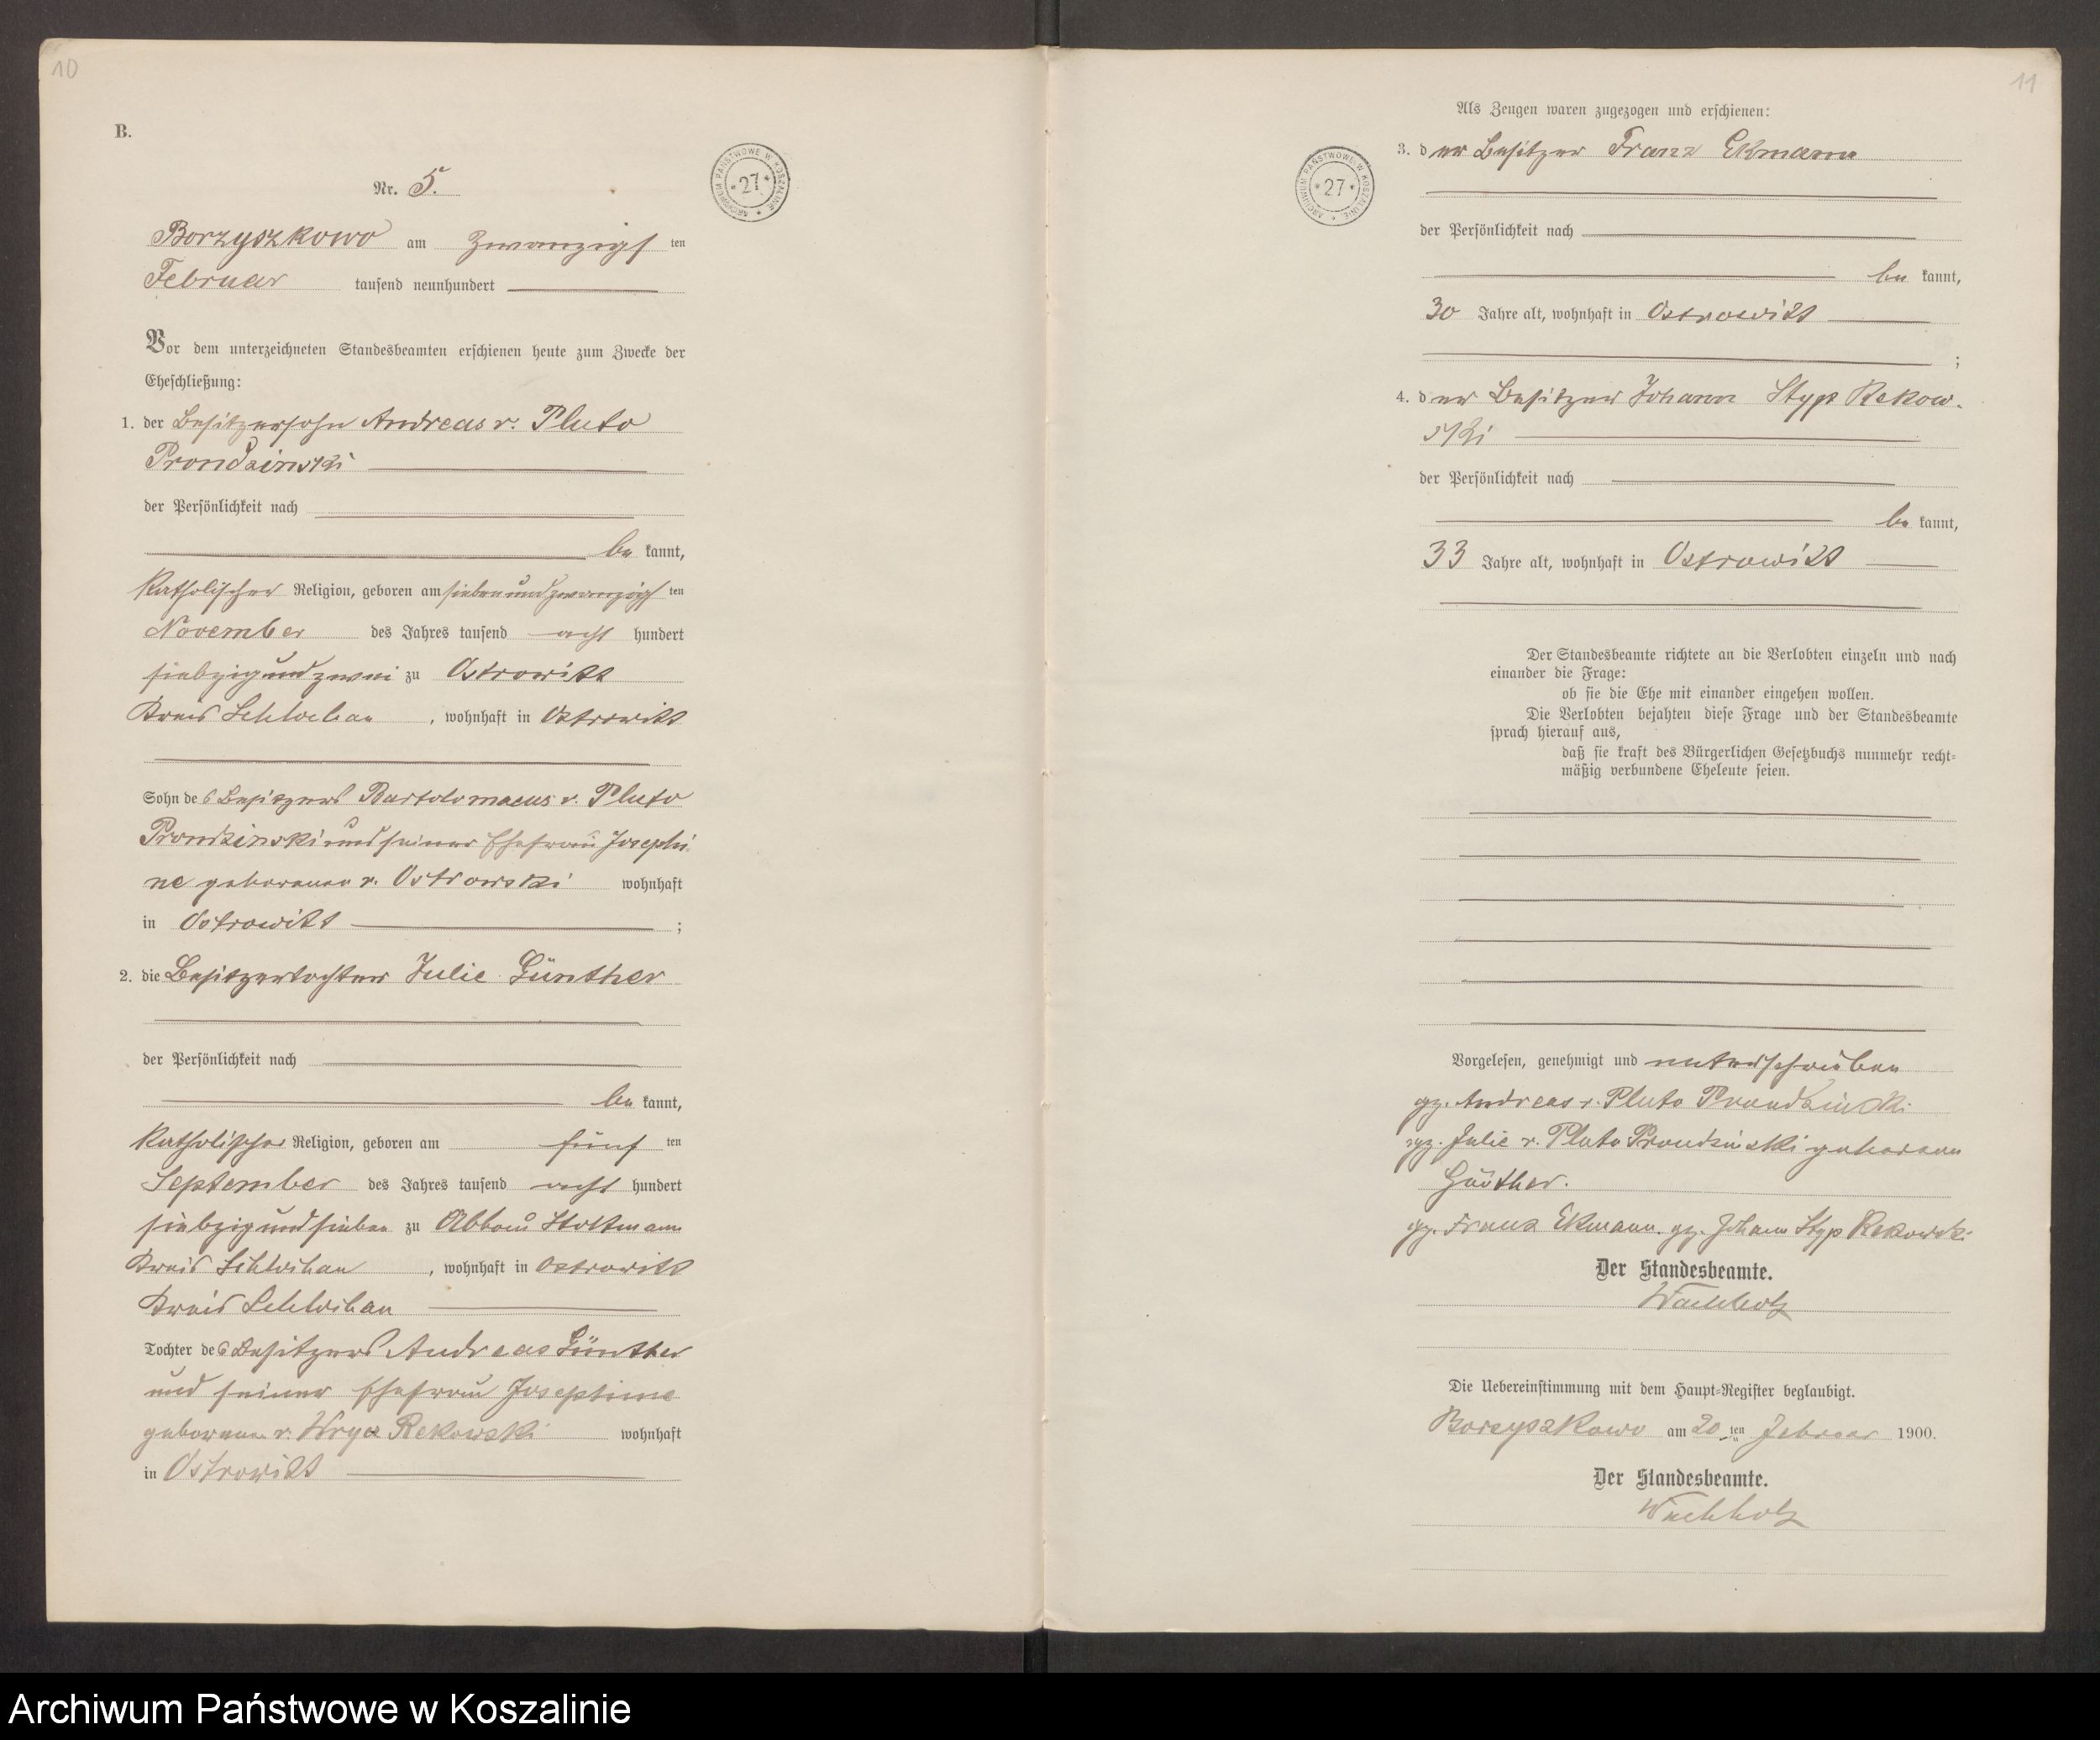 10
B.
Nr. 5.
ARCHIWUM PAŃSTWOWE W KOSZALINIE * 27 *
Borzyszkowo am Zwanzigsten
Februar tausend neunhundert
Vor dem unterzeichneten Standesbeamten erschienen heute zum Zwecke der
Eheschließung:
1. der Besitzersohn Andreas v. Pluto
Prondzinski
der Persönlichkeit nach
be kannt,
Katholischer Religion, geboren am siebenundzwanzigsten
November des Jahres tausend acht hundert
siebzig und zwei zu Ostrowitt
Kreis Schlochau, wohnhaft in Ostrowitt
Sohn des Besitzers Bartolomaeus v. Pluto
Prondzinski und seiner Ehefrau Josephi-
ne geborenen v. Ostrowski wohnhaft
in Ostrowitt ;
2. die Besitzertochter Julie Günther
der Persönlichkeit nach
be kannt,
Katholischer Religion, geboren am fünf ten
September des Jahres tausend acht hundert
siebzig und sieben zu Abbau Stoltmann
Kreis Schlochau, wohnhaft in Ostrowitt
Kreis Schlochau
Tochter des Besitzers Andreas Günther
und seiner Ehefrau Josephine
geborenen v. Wrycz Rekowski wohnhaft
in Ostrowitt
11
Als Zeugen waren zugezogen und erschienen:
ARCHIWUM PAŃSTWOWE W KOSZALINIE * 27 *
3. der Besitzer Franz Ekmann
der Persönlichkeit nach
be kannt,
30 Jahre alt, wohnhaft in Ostrowitt
;
4. der Besitzer Johann Styp Rekow-
ski
der Persönlichkeit nach
be kannt,
33 Jahre alt, wohnhaft in Ostrowitt
Der Standesbeamte richtete an die Verlobten einzeln und nach
einander die Frage:
ob sie die Ehe mit einander eingehen wollen.
Die Verlobten bejahten diese Frage und der Standesbeamte
sprach hierauf aus,
daß sie kraft des Bürgerlichen Gesetzbuchs nunmehr recht-
mäßig verbundene Eheleute seien.
Vorgelesen, genehmigt und unterschrieben
gz. Andreas v. Pluto Prondzinski
gz. Julie v. Pluto Prondzinski geborene
Günther.
gz. Franz Ekmann. gz. Johann Styp Rekowski
Der Standesbeamte.
Wachholz
Die Uebereinstimmung mit dem Haupt-Register beglaubigt.
Borzyszkowo am 20 ten Februar 1900.
Der Standesbeamte.
Wachholz
Archiwum Państwowe w Koszalinie